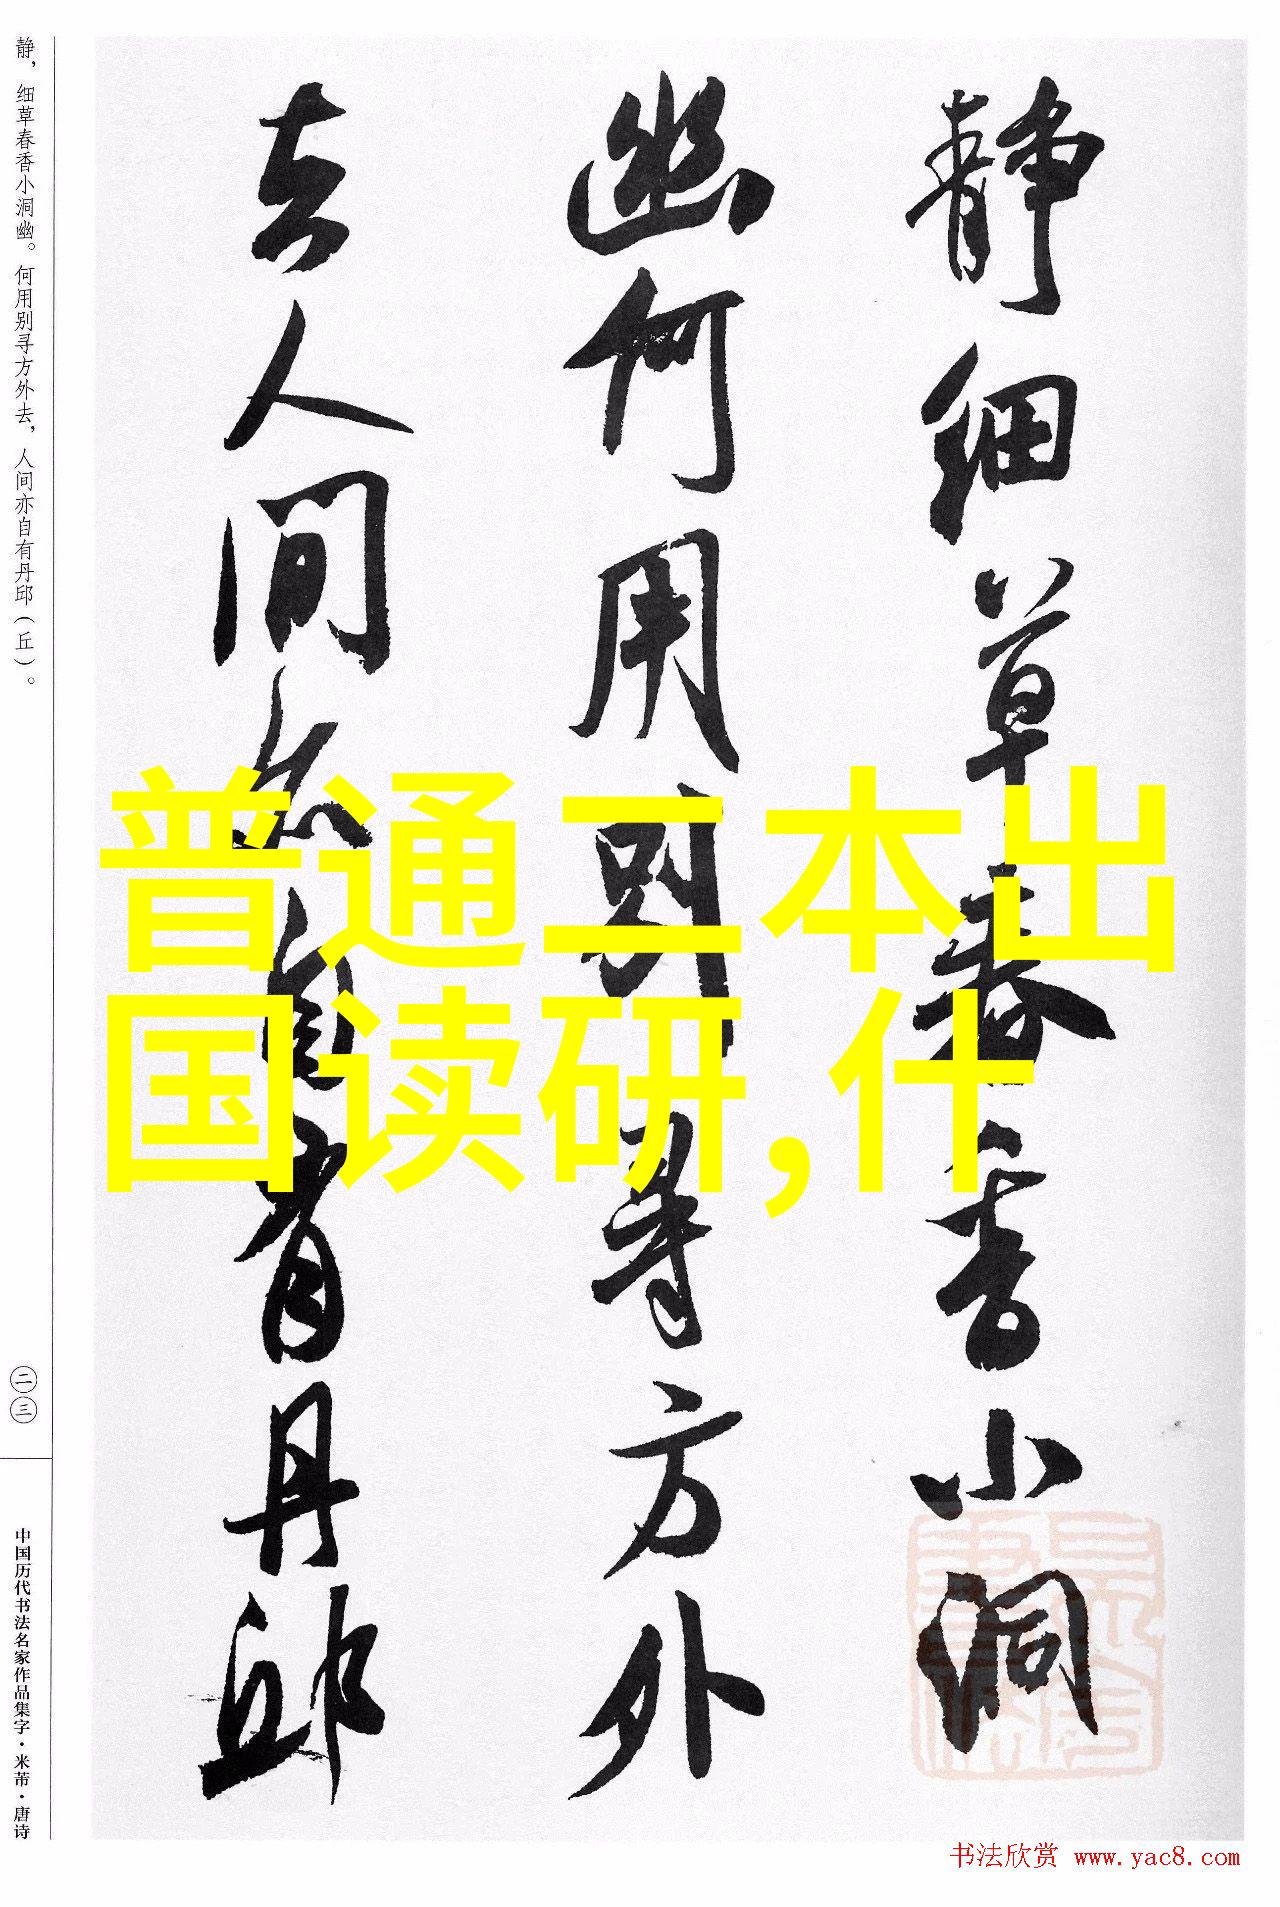 静细草春香小洞
幽何用别寻方外
去人间亦自有丹邱
普通二本出
国读研,什
静，细草春香小洞幽。何用别寻方外去，人间亦自有丹邱（丘）。
二三
中国历代书法名家作品集字·米芾·唐诗
书法欣赏 www.yac8.com